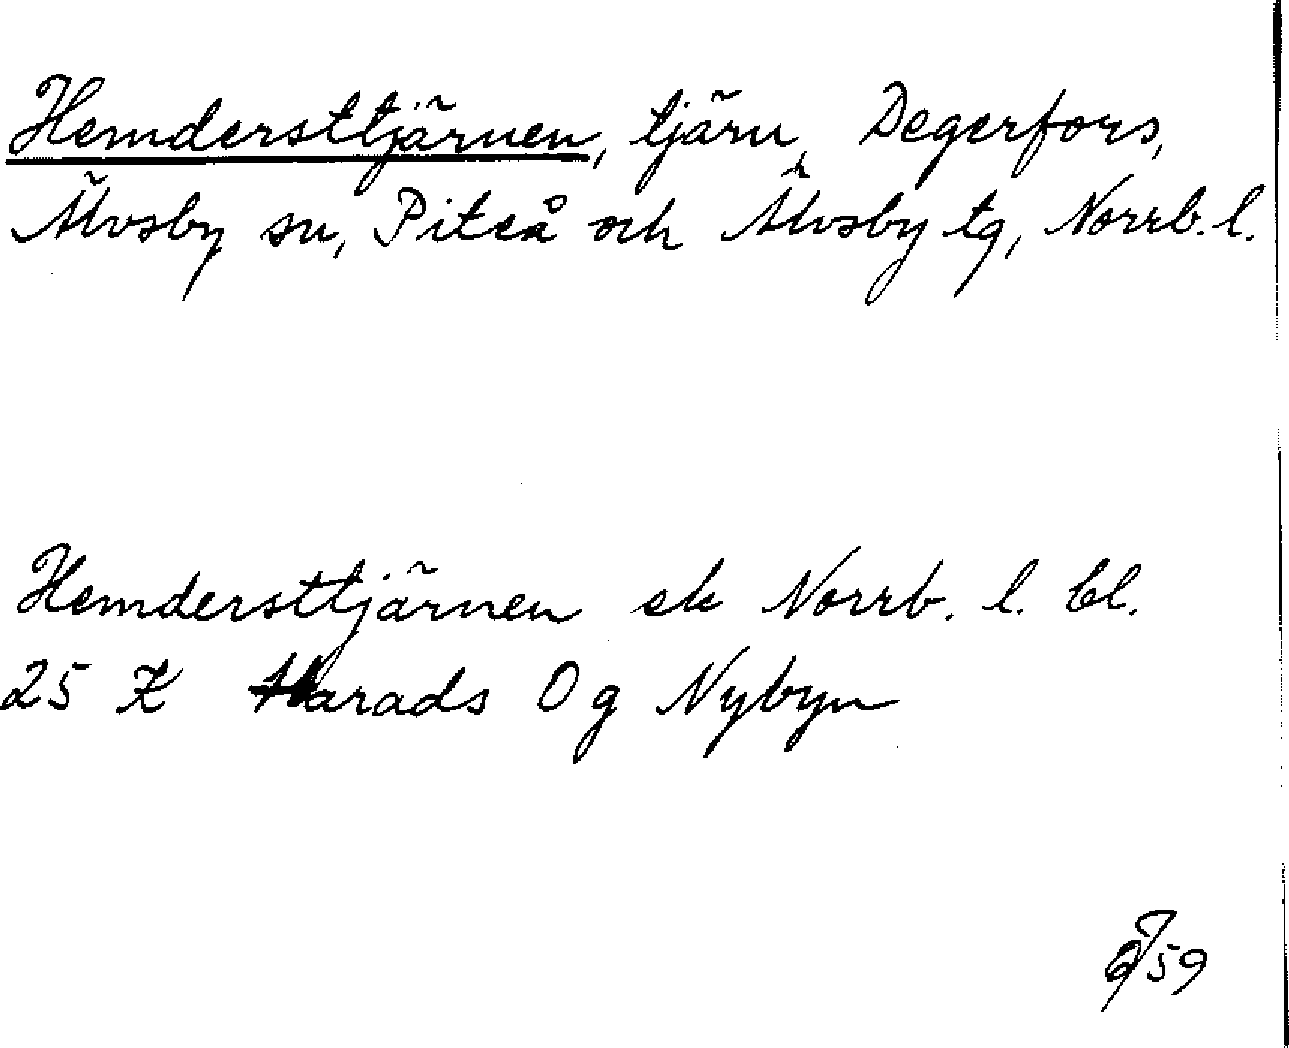 Hemdersttjärnen, tjärn, Degerfors,
Älvsby sn, Piteå och Älvsby tg, Norrb. l.
Hemdersttjärnen ek Norrb. l. bl.
25 K Harads O g Nybyn
59